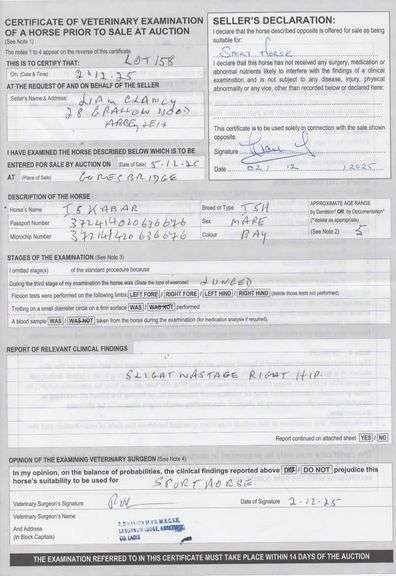 CERTIFICATE OF VETERINARY EXAMINATION
OF A HORSE PRIOR TO SALE AT AUCTION
(See Note 1)
The notes 1 to 4 appear on the reverse of this certificate
THIS IS TO CERTIFY THAT: LOT 158
On: (Date & Time) 2-12-25
AT THE REQUEST OF AND ON BEHALF OF THE SELLER
Seller's Name & Address: LIAM CLANCY
28 WOOD
SELLER'S DECLARATION:
I declare that the horse described opposite is offered for sale as being
suitable for: SPORT HORSE
I declare that this horse has not received any surgery, medication or
abnormal nutrients likely to interfere with the findings of a clinical
examination and is not subject to any disease, injury, physical
abnormality or any vice, other than recorded below or declared here:
This certificate is to be used solely in connection with the sale shown
opposite.
Signature
Date 02 / 12 / 2025
I HAVE EXAMINED THE HORSE DESCRIBED BELOW WHICH IS TO BE
ENTERED FOR SALE BY AUCTION ON (Date of Sale) 5-12-25
AT (Place of Sale) GORESBRIDGE
DESCRIPTION OF THE HORSE
Horse's Name TS KABAR Breed or Type ISH
Passport Number 372414020636676 Sex MARE
Microchip Number Colour BAY
APPROXIMATE AGE RANGE
by Dentition* OR by Documentation*
(* delete as appropriate)
(See Note 2) 5
STAGES OF THE EXAMINATION (See Note 3)
I omitted stage(s) of the standard procedure because
During the third stage of my examination the horse was (State the type of exercise) LUNGED
Flexion tests were performed on the following limbs LEFT FORE / RIGHT FORE / LEFT HIND / RIGHT HIND (delete those tests not performed)
Trotting on a small diameter circle on a firm surface WAS / WAS NOT performed
A blood sample WAS / WAS NOT taken from the horse during the examination (for medication analysis if required).
REPORT OF RELEVANT CLINICAL FINDINGS
SLIGHT WASTAGE RIGHT HIP.
Report continued on attached sheet YES / NO
OPINION OF THE EXAMINING VETERINARY SURGEON (See Note 4)
In my opinion, on the balance of probabilities, the clinical findings reported above DO / DO NOT prejudice this
horse's suitability to be used for SPORT HORSE
Veterinary Surgeon's Signature Date of Signature 2-12-25
Veterinary Surgeon's Name
And Address
(In Block Capitals)
CO. LAOIS
THE EXAMINATION REFERRED TO IN THIS CERTIFICATE MUST TAKE PLACE WITHIN 14 DAYS OF THE AUCTION